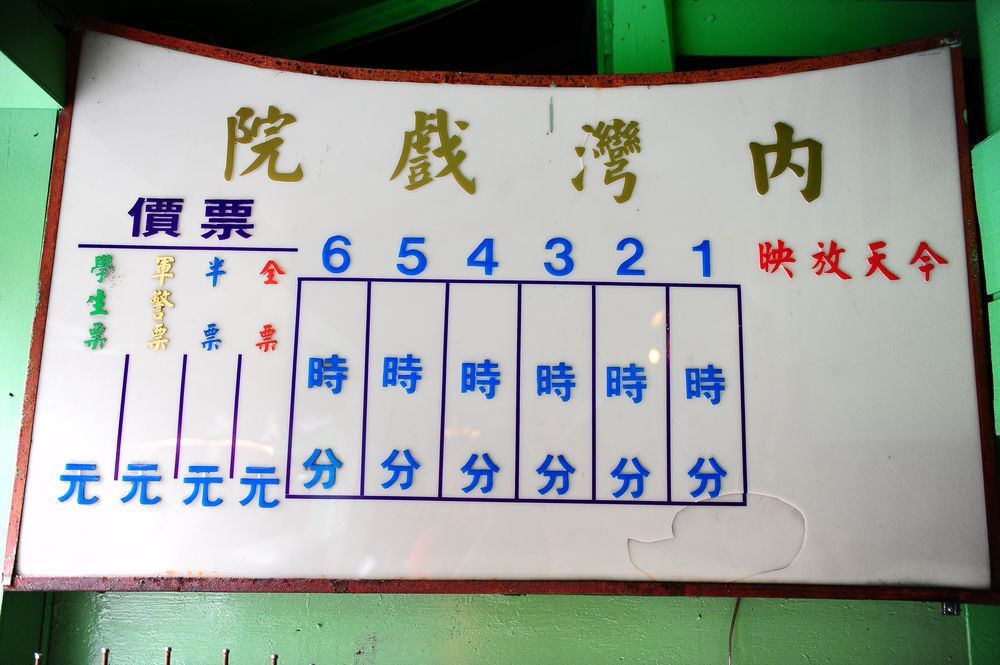 內灣戲院
今天放映
1 2 3 4 5 6
時 時 時 時 時 時
分 分 分 分 分 分
票價
全票 半票 軍警票 學生票
元 元 元 元